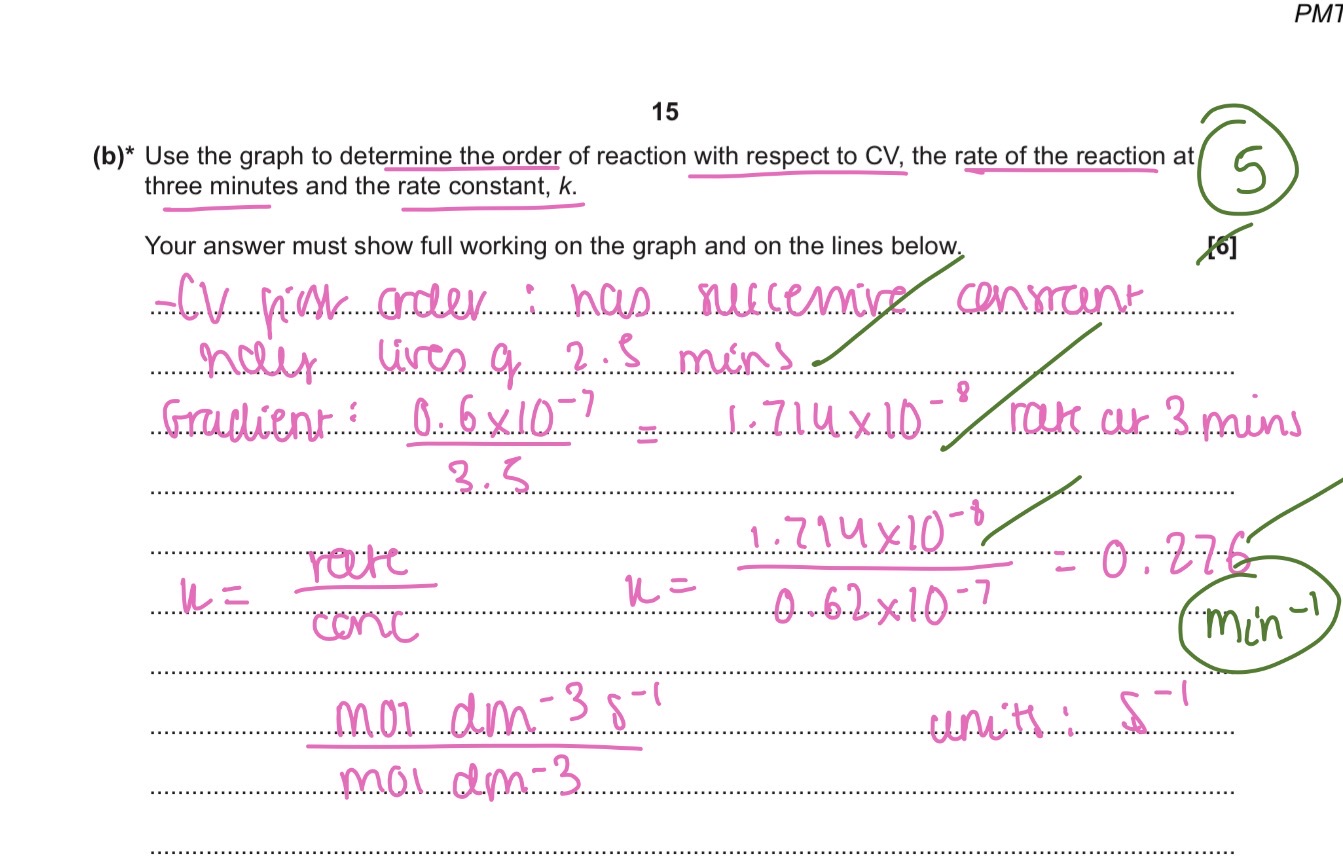 PMT
15
(b)* Use the graph to determine the order of reaction with respect to CV, the rate of the reaction at
three minutes and the rate constant, k.
5
Your answer must show full working on the graph and on the lines below.
[6]
-CV first order : has successive constant
half lives of 2.5 mins
Gradient: 0.6x10⁻⁷ / 3.5 = 1.714x10⁻⁸ rate at 3 mins
k = rate / conc k = 1.714x10⁻⁸ / 0.62x10⁻⁷ = 0.276
min⁻¹
mol dm⁻³ s⁻¹ / mol dm⁻³ units: s⁻¹